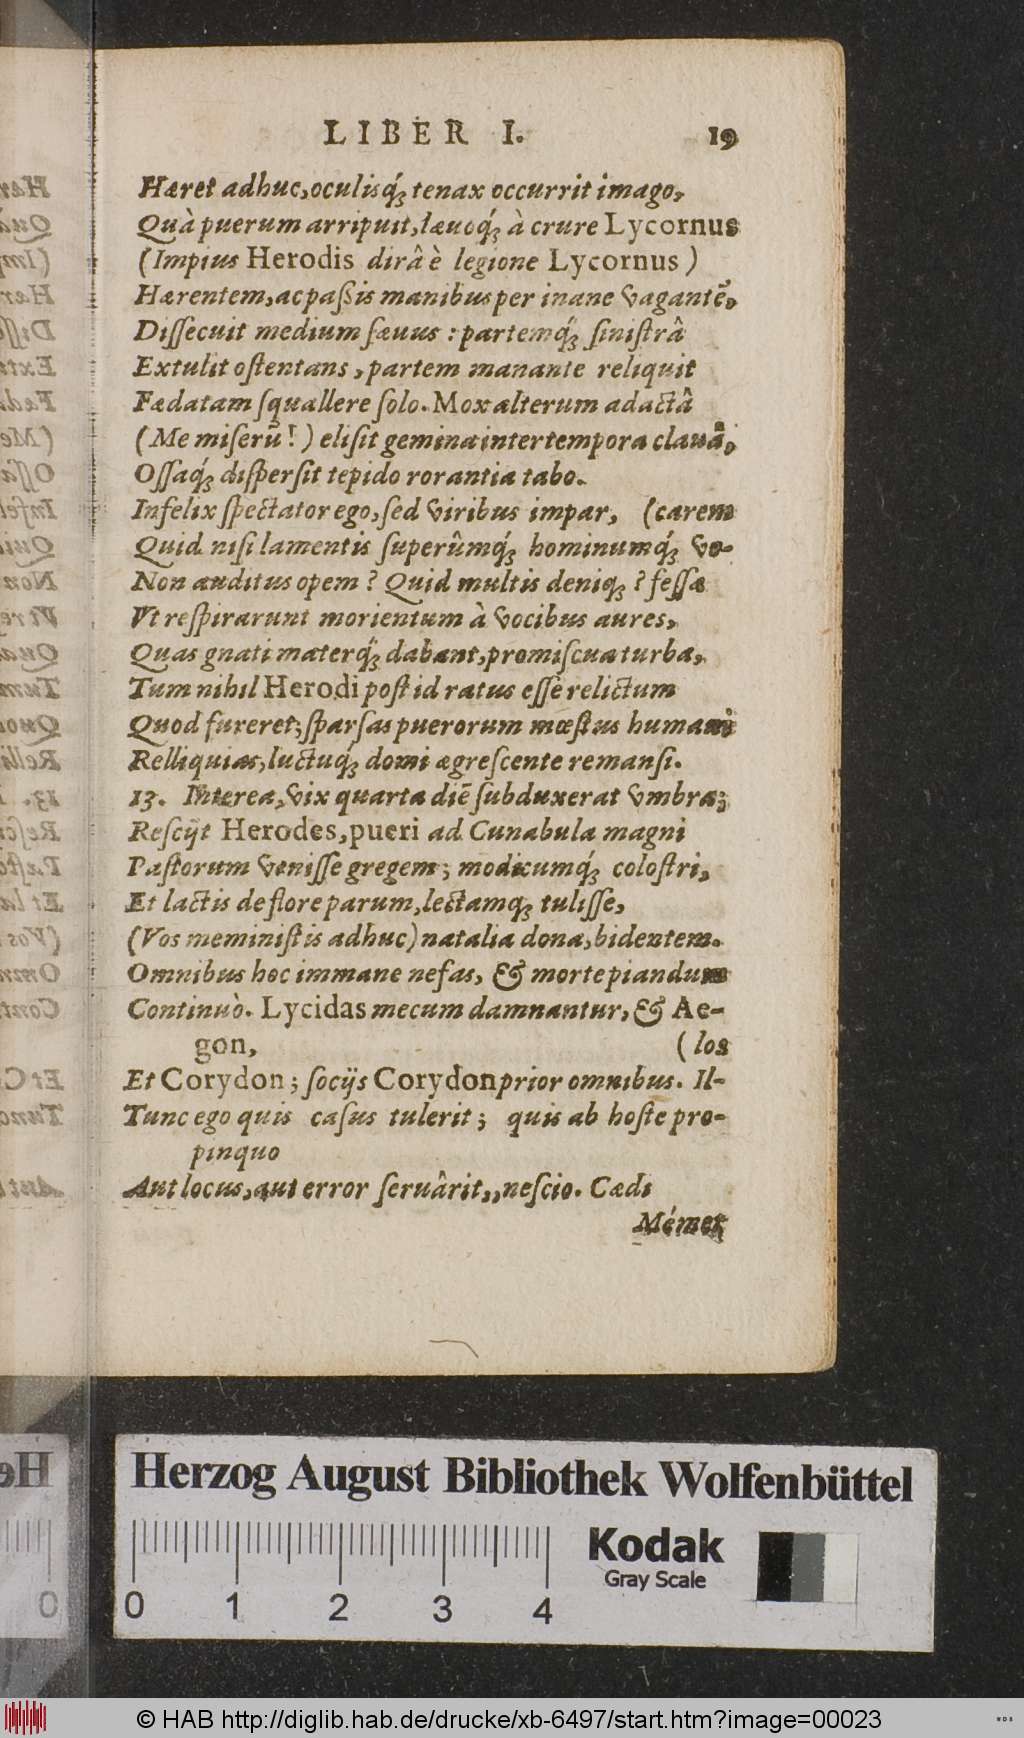 LIBER I. 19
Hæret adhuc, oculisq́; tenax occurrit imago,
Quà puerum arripuit, læuoq́; à crure Lycornus
(Impius Herodis dirâ è legione Lycornus)
Hærentem, ac paßis manibus per inane vagantē,
Dissecuit medium sæuus: partemq́; sinistrâ
Extulit ostentans, partem manante reliquit
Fædatam squallere solo. Mox alterum adactâ
(Me miserū!) elisit gemina inter tempora clauâ,
Ossaq́; dispersit tepido rorantia tabo.
Infelix spectator ego, sed viribus impar, (carem
Quid nisi lamentis superûmq́; hominumq́; vo-
Non auditus opem? Quid multis deniq;? fessæ
Vt respirarunt morientum à vocibus aures,
Quas gnati materq́; dabant, promiscua turba,
Tum nihil Herodi post id ratus esse relictum
Quod fureret; sparsas puerorum mœstus humani
Relliquias, luctuq́; domi ægrescente remansi.
13. Interea, vix quarta diē subduxerat vmbra;
Rescijt Herodes, pueri ad Cunabula magni
Pastorum venisse gregem; modicumq́; colostri,
Et lactis de flore parum, lectamq; tulisse,
(Vos meministis adhuc) natalia dona, bidentem.
Omnibus hoc immane nefas, & morte piandum
Continuò. Lycidas mecum damnantur, & Ae-
gon, (los
Et Corydon; socijs Corydon prior omnibus. Il-
Tunc ego quis casus tulerit; quis ab hoste pro-
pinquo
Aut locus, aut error seruârit,, nescio. Cædi
Mémet
Herzog August Bibliothek Wolfenbüttel
Kodak
Gray Scale
0 1 2 3 4
© HAB http://diglib.hab.de/drucke/xb-6497/start.htm?image=00023